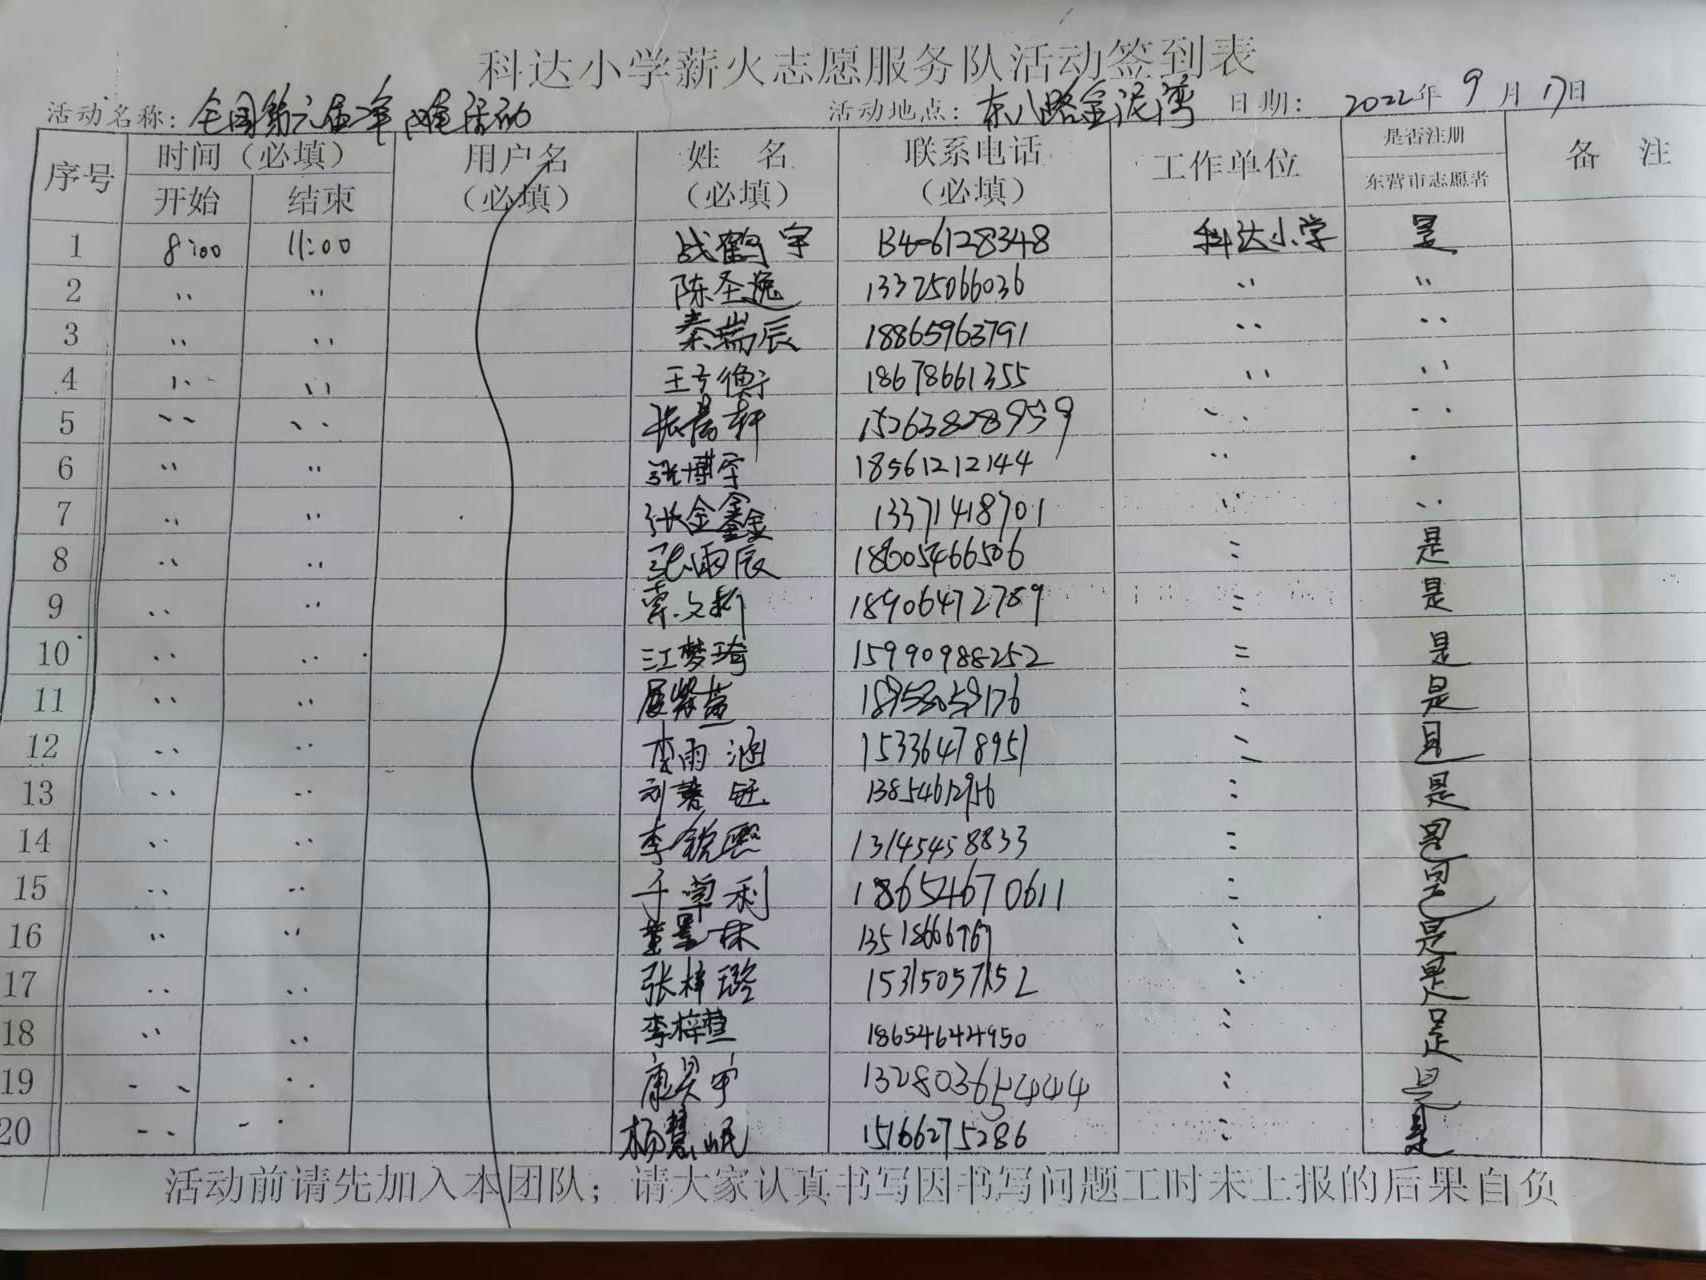 科达小学薪火志愿服务队活动签到表
活动名称: 全国第六届净滩活动 活动地点: 东八路金泥湾 日期: 2022年 9 月 17日
序号 时间（必填） 用户名（必填） 姓 名（必填） 联系电话（必填） 工作单位 是否注册 东营市志愿者 备 注
开始 结束
1 8:00 11:00 战鹤宇 科达小学 是
2 〃 〃 陈圣逸 13325066036 〃 〃
3 〃 〃 秦端辰 18865963791 〃 〃
4 〃 〃 王亏衡 18678661355 〃 〃
5 〃 〃 张高轩 15263828959 〃 〃
6 〃 〃 张博宇 18561212144 〃
7 〃 〃 张金鑫 13371418701 〃 〃
8 〃 〃 张雨辰 18605466506 〃 是
9 〃 〃 索文新 18906472789 〃 是
10 〃 〃 江梦琦 15990988252 〃 是
11 〃 〃 〃 是
12 〃 〃 李雨涵 15336478951 〃 是
13 〃 〃 刘慧钰 〃 是
14 〃 〃 李锐熙 13145458833 〃 是
15 〃 〃 18654670611 〃 是
16 〃 〃 董墨林 〃 是
17 〃 〃 张梓璐 15315057152 〃 是
18 〃 〃 李梓萱 18654644950 〃 是
19 〃 〃 康昊宇 〃 是
20 〃 〃 杨慧岷 15166275286 〃 是
活动前请先加入本团队；请大家认真书写因书写问题工时未上报的后果自负